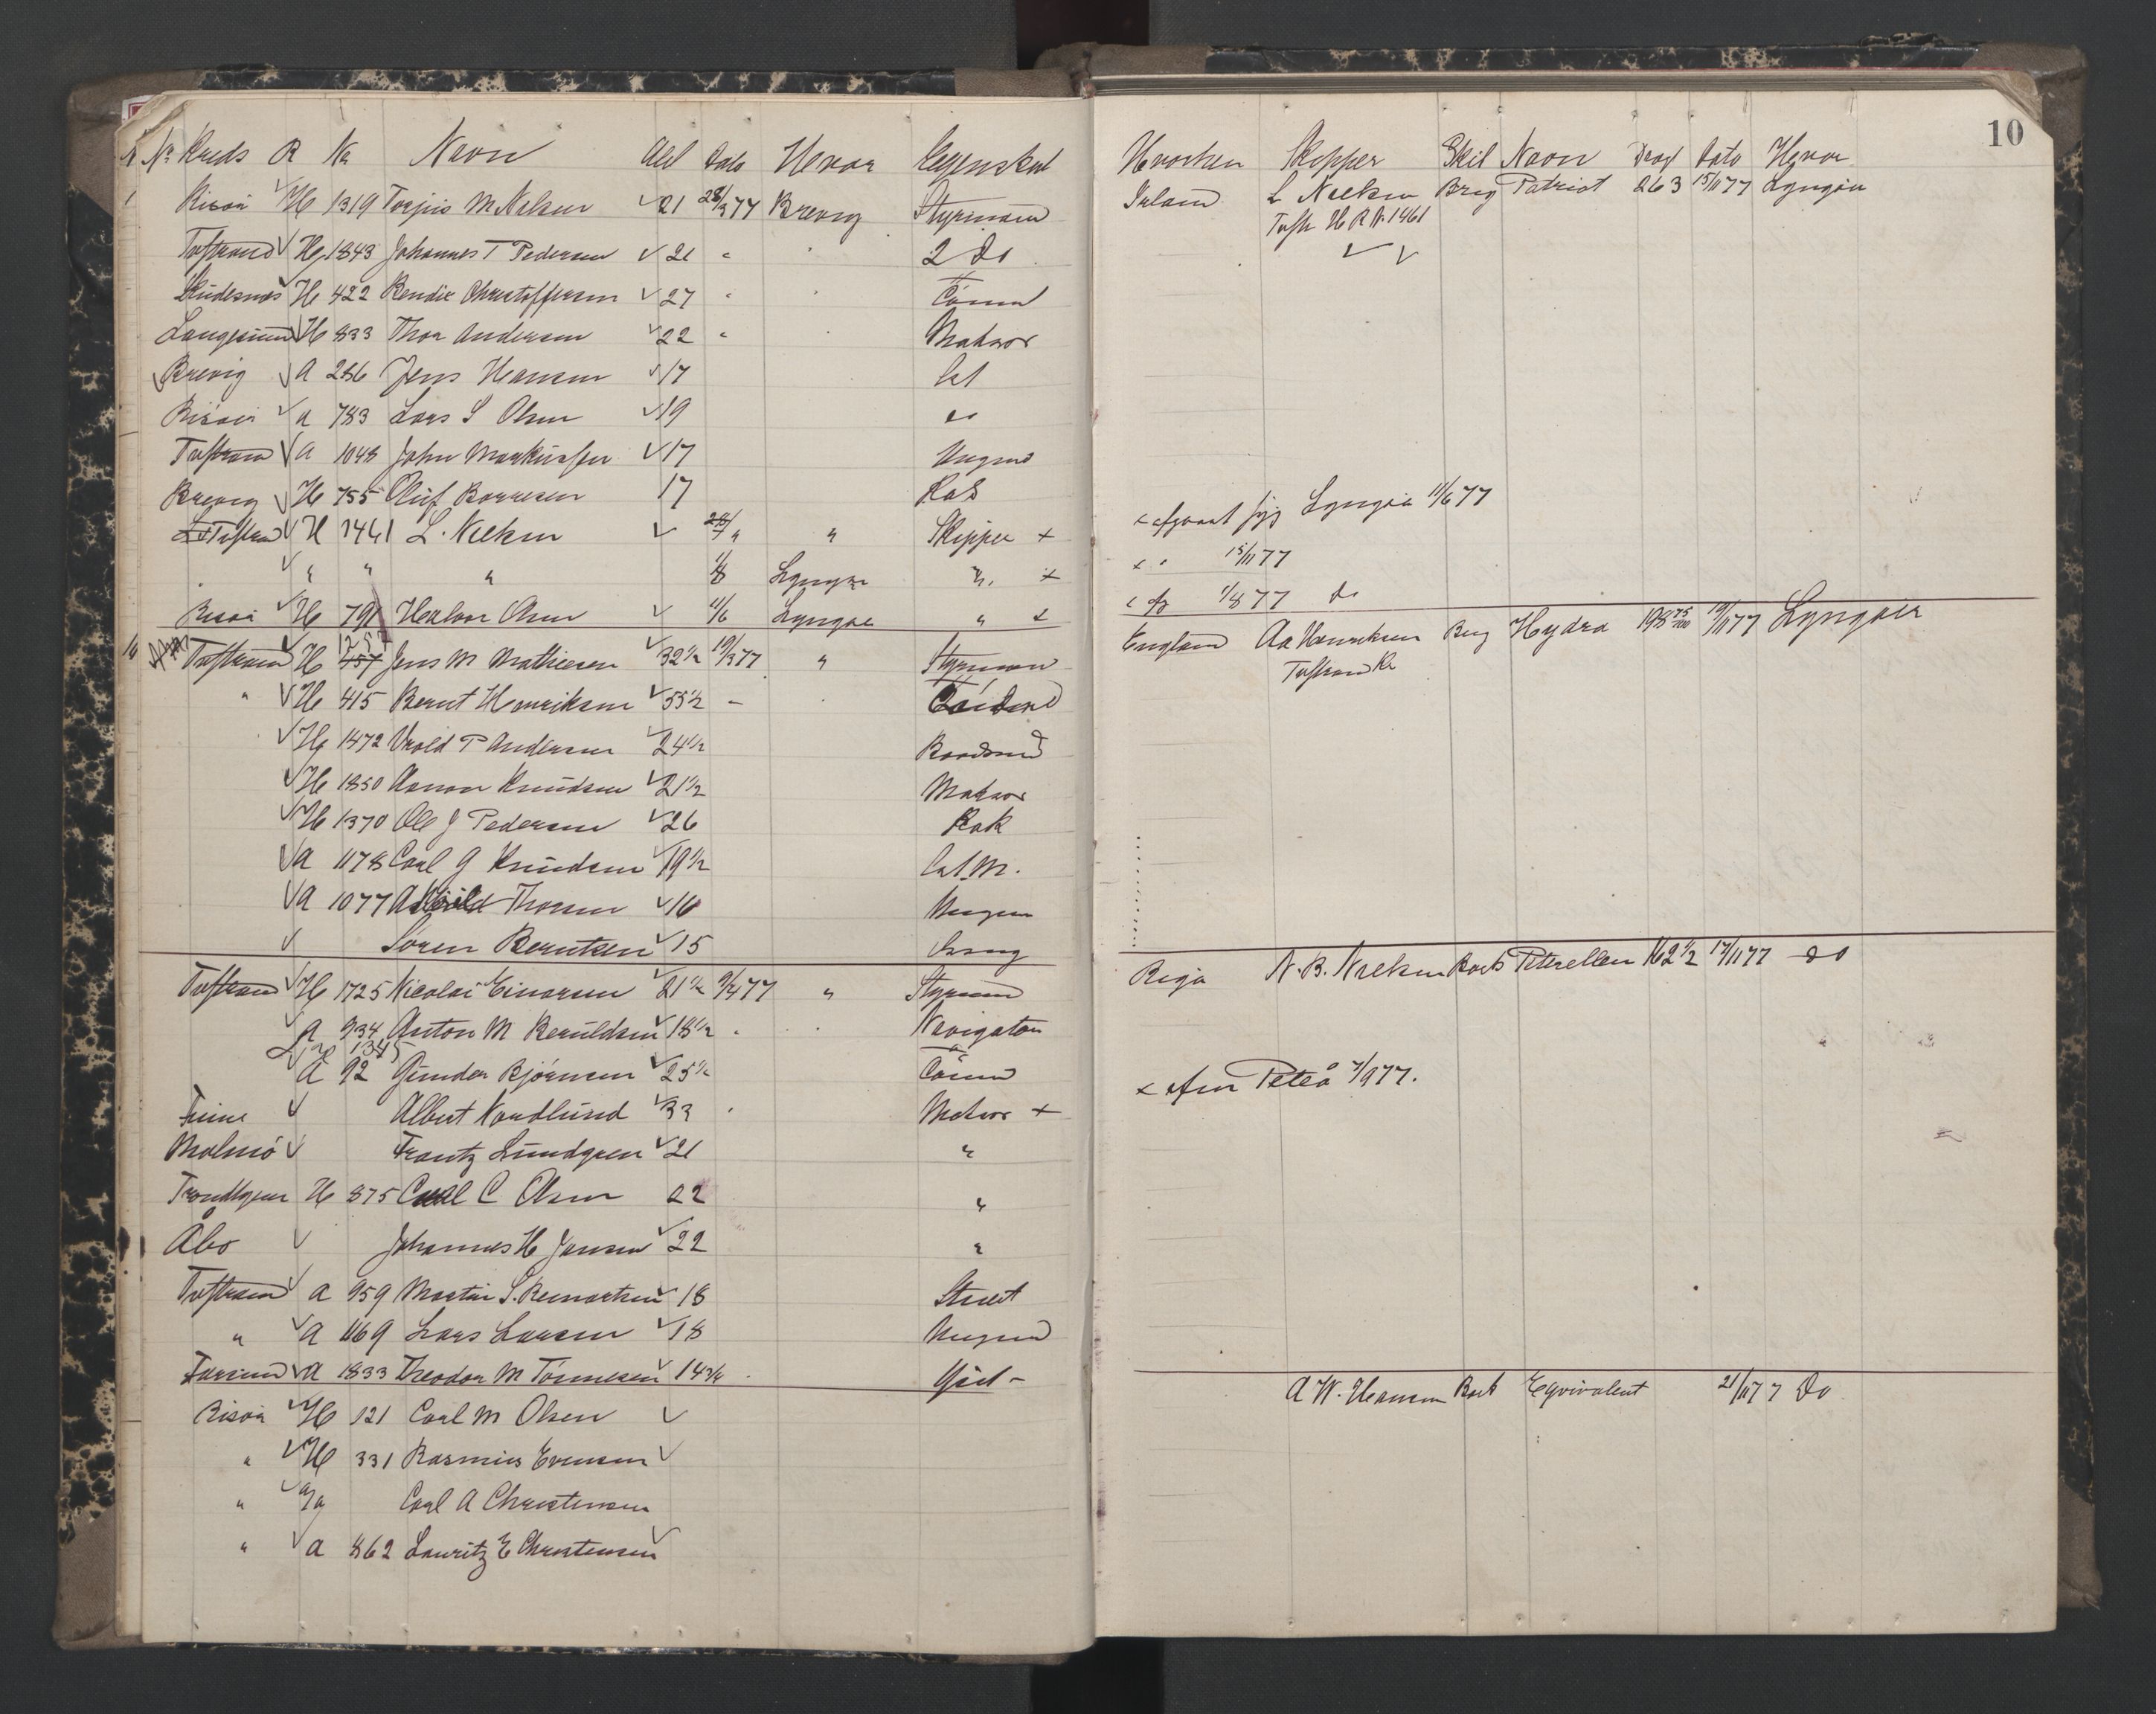 No Kreds R No Navn Ald Dato Hvor Egenskab
1 Risøi H 1319 Torjus M Nielsen 21 28/3 77 Brevig Styrmand
Tvestrand H 1843 Johannes T Pedersen 21 " 2 do
Skudesnes H 422 Bendix Christoffersen 27 " Tömmd
Langesund H 833 Thor Andersen 22 " Matros
Brevig A 286 Jens Hansen 17 Let
Risøi A 783 Lars S Olsen 19 do
Tvestrand A 1048 John Markussen 17 Ungmd
Brevig H 755 Oluf Borresen 17 Kok
Tvestrand H 1461 L. Nielsen " Skipper +
" " " 1/8 Lyngør " +
Risøi H 791 Halvor Olsen 11/6 Lyngør " +
Tvestrand H 457 Jens M Mathiesen 32½ 19/3 77 " Styrmand
" H 415 Bernt Henriksen 55½ -
H 1472 Vrold P Andersen 24½ Baadsmd
H 1850 Aanon Knudsen 21½ Matros
H 1370 Ole J Pedersen 26 Kok
A 1178 Carl G Knudsen 19½ Let M.
A 1077 Thorsen 16 Ungm
Søren Berntsen 15
Tvestrand H 1725 Nicolai Einarsen 21½ 9/4 77 " Styrmd
A 934 Anton M Beruldsen 18½ Navigatør
1345
A 92 Gunder Bjørnsen 25½ Tömmd
Albert Nordlund 33 Matros +
Malmö Frantz Lundgren 21 "
Trondhjem H 875 Carl C Olsen 22 "
Åbo Johannes H Jansen 22 "
Tvestrand A 959 Martin S. Reinertsen 18 Stuert
" A 1169 Lars Larsen 18 Ungmd
Farsund A 1833 Theodor M Tönnesen 14¾
Risøi H 121 Carl M Olsen
" H 331 Rasmus Evensen
" Carl A Christensen
" A 862 Lauritz E Christensen
10
Hvorhen Skipper Skil Navn Dræg Dato Hvor
Irland L Nielsen Brig Patriot 263 15/11 77 Lyngør
Tvestr H R N 1461
Lyngør 11/6 77
x " 15/11 77
1/8 77 do
England Aa Henriksen Brig Hydra 198 75/100 19/11 77 Lyngør
Tvestrand Kr
Riga N. B. Nielsen Bark Peterellen 162½ 17/11 77 do
x Piteå 7/9 77.
A W. Hansen Bark Eqvivalent 21/11 77 Do